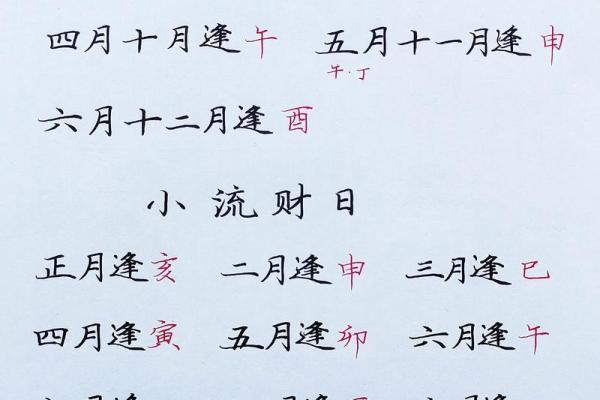 四月十月逢午 五月十一月逢申
午·丁
六月十二月逢酉
小流财日
正月逢亥 二月逢申 三月逢巳
四月逢寅 五月逢卯 六月逢午